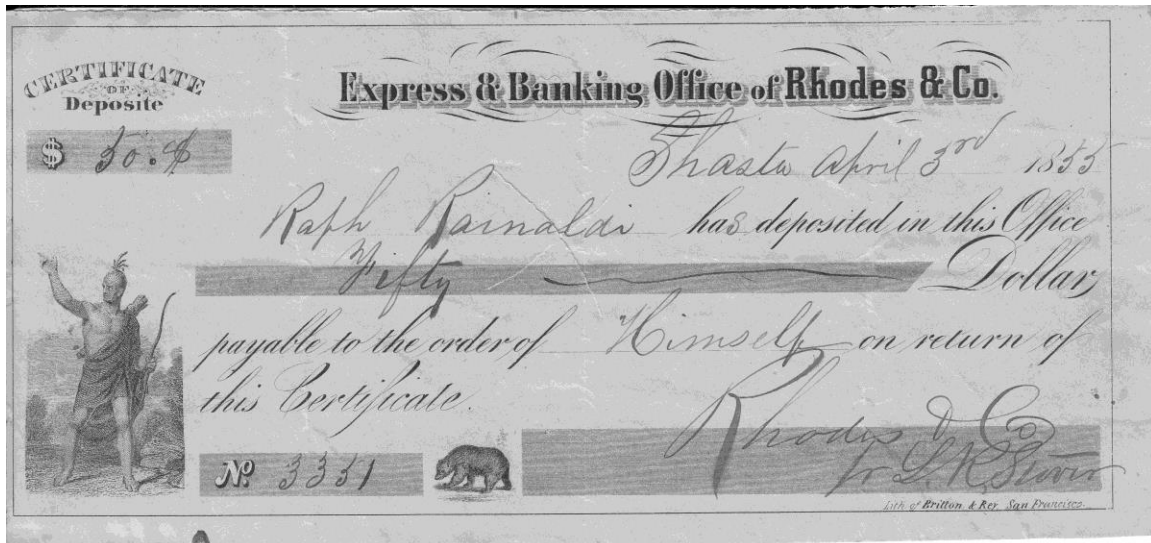 CERTIFICATE
OF
Deposite
Express & Banking Office of Rhodes & Co.
$ 50.
Shasta April 3rd 1855
Raph Rainaldi has deposited in this Office
Fifty Dollars
payable to the order of Himself on return of
this Certificate.
Rhodes & Co
No. 3351
Lith. of Britton & Rey. San Francisco.